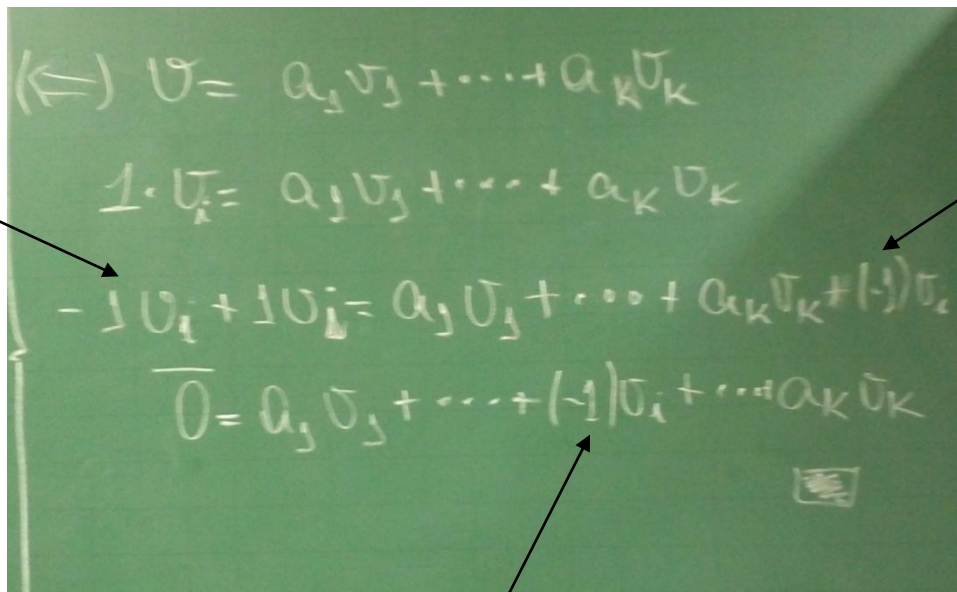 (⇐) v = a₁v₁ + ⋯ + aₖvₖ
1·vᵢ = a₁v₁ + ⋯ + aₖvₖ
-1vᵢ + 1vᵢ = a₁v₁ + ⋯ + aₖvₖ + (-1)vᵢ
0̅ = a₁v₁ + ⋯ + (-1)vᵢ + ⋯ + aₖvₖ